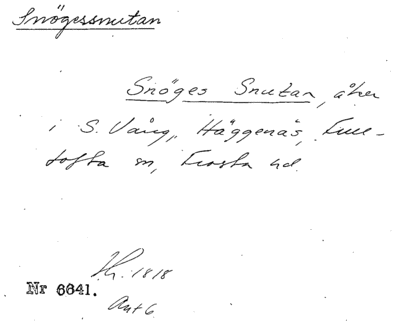 Snögessnutan
Snöges Snutan, åker
i S. Vång, Häggenäs, Full-
tofta sn, Frosta hd.
Hr. 1818
Nr 6641.
Akt 6